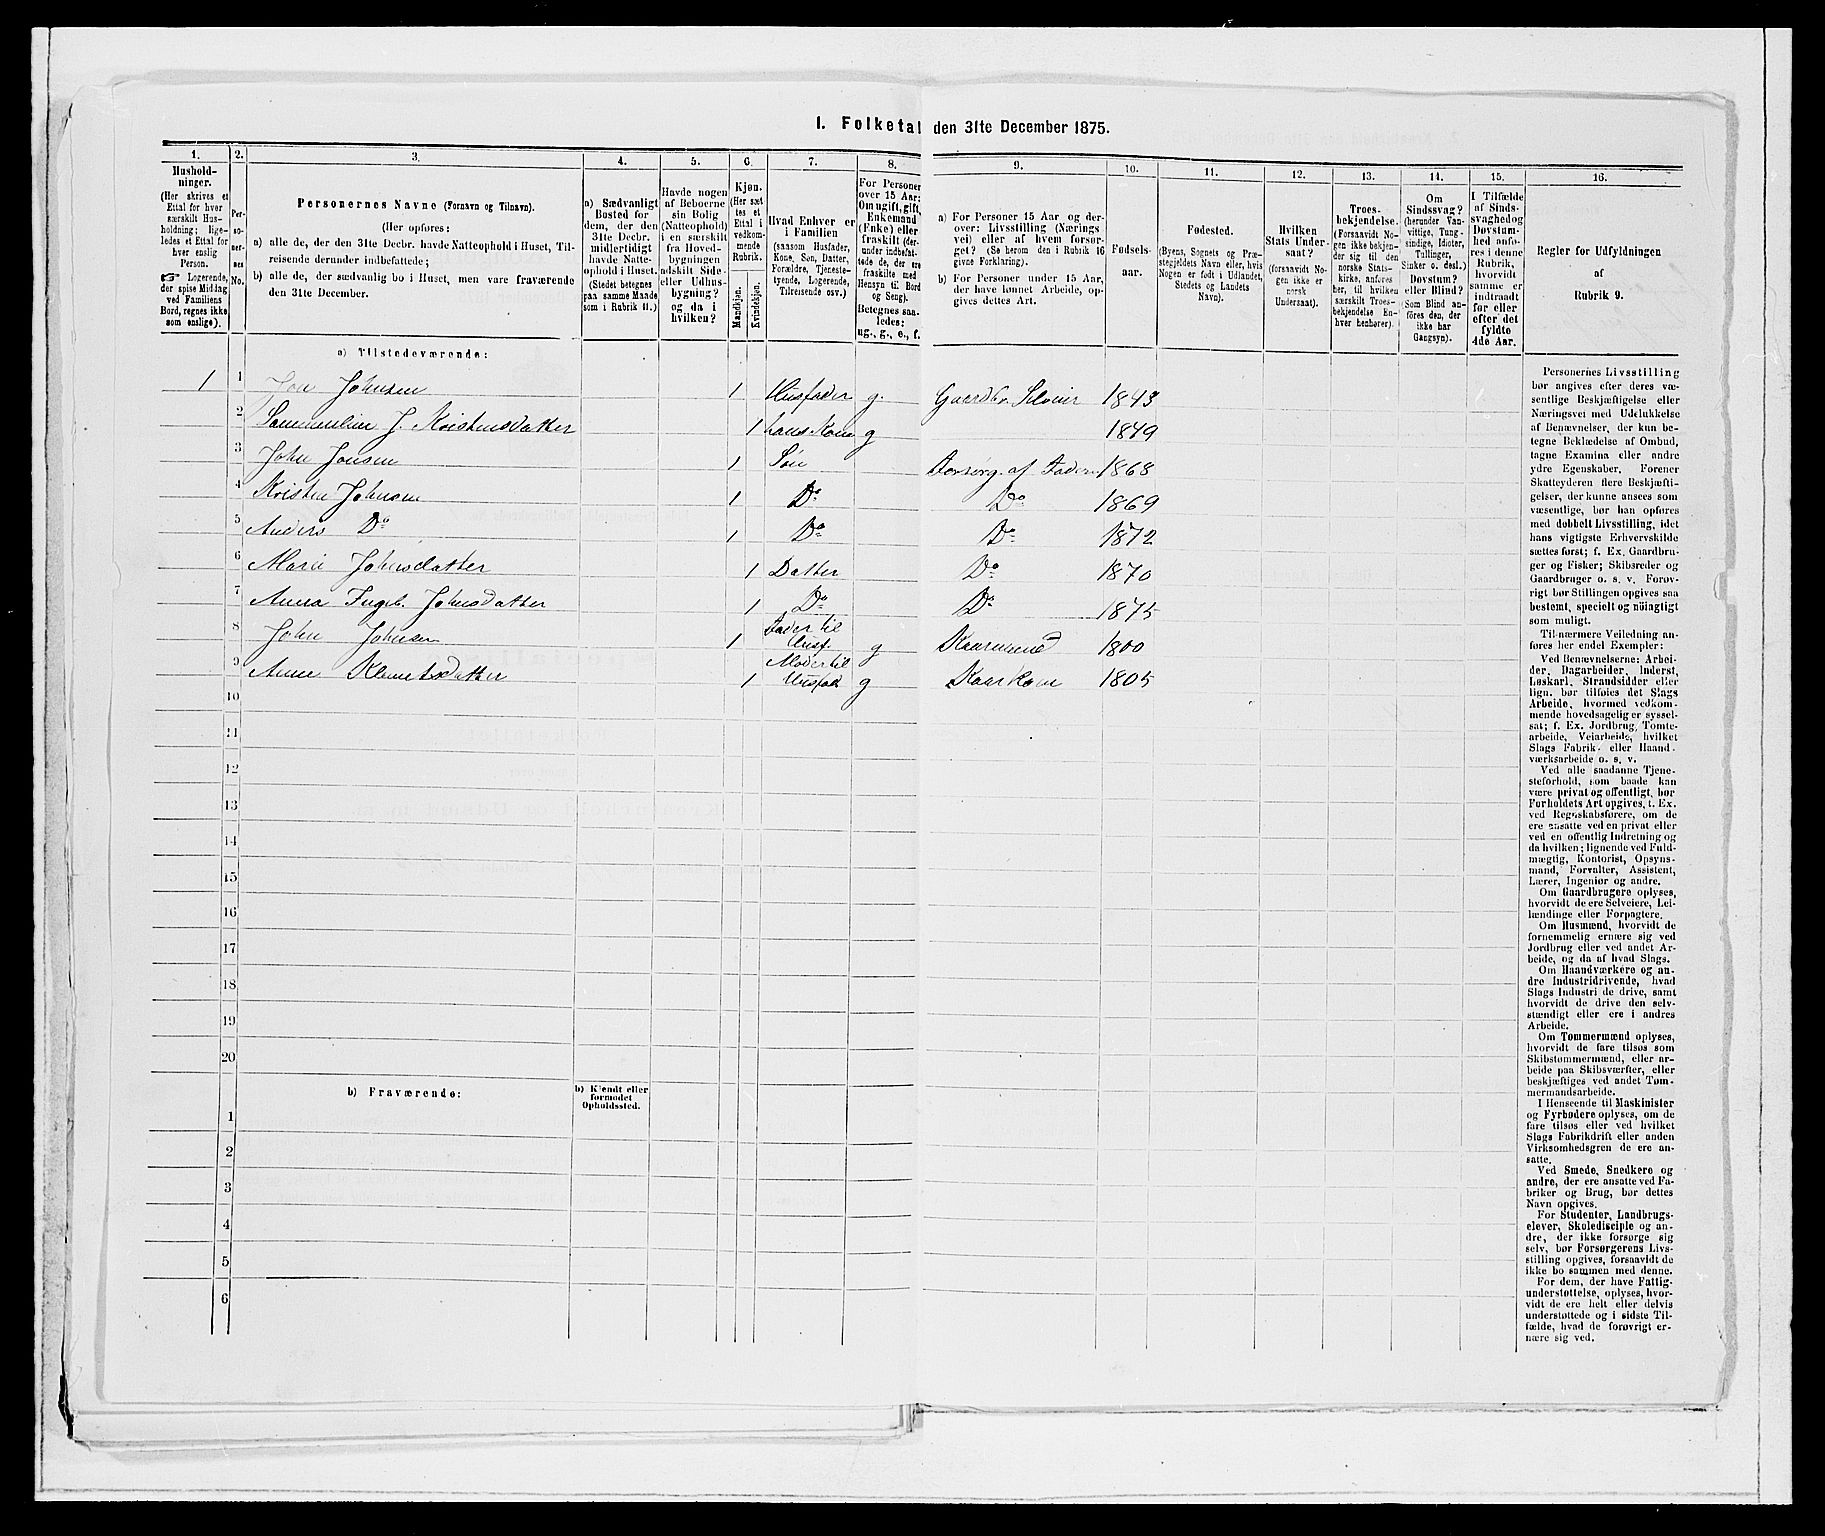 I. Folketal den 31te December 1875.
1. 2. 3. 4. 5. 6. 7. 8. 9. 10. 11. 12. 13. 14. 15. 16.
Hushold-
ninger.
(Her skrives et
Ettal for hver
særskilt Hus-
holdning; lige-
ledes et Ettal for
hver enslig
Person.
☞ Logerende,
der spise Middag
ved Familiens
Bord, regnes ikke
som enslige).
Per-
soner-
nes
No.
Personernes Navne (Fornavn og Tilnavn).
(Her opføres:
a) alle de, der den 31te Decbr. havde Natteophold i Huset, Til-
reisende derunder indbefattede;
b) alle de, der sædvanlig bo i Huset, men vare fraværende
den 31te December.
a) Sædvanligt
Bosted for
dem, der den
31te Decbr.
midlertidigt
havde Natte-
ophold i Huset.
(Stedet betegnes
paa samme Maade
som i Rubrik 11.)
Havde nogen
af Beboerne
sin Bolig
(Natteophold)
i en særskilt
fra Hoved-
bygningen
adskilt Side-
eller Udhus-
bygning?
og da i
hvilken?
Kjøn.
(Her sæt-
tes et
Ettal i
vedkom-
mende
Rubrik.
Mandkjøn.
Kvindekjøn.
Hvad Enhver er
i Familien
(saasom Husfader,
Kone, Søn, Datter,
Forældre, Tjeneste-
tyende, Logerende,
Tilreisende osv.)
For Personer
over 15 Aar:
Om ugift, gift,
Enkemand
(Enke) eller
fraskilt (der-
under indbefat-
tede de, der ere
fraskilte med
Hensyn til Bord
og Seng).
Betegnes saa-
ledes:
ug., g., e., f.
a) For Personer 15 Aar og der-
over: Livsstilling (Nærings-
vei) eller af hvem forsør-
get? (Se herom den i Rubrik 16
givne Forklaring).
b) For Personer under 15 Aar,
der have lønnet Arbeide, op-
gives dettes Art.
Fødsels-
aar.
Fødested.
(Byens, Sognets og Præ-
stegjeldets Navn eller, hvis
Nogen er født i Udlandet,
Stedets og Landets
Navn).
Hvilken
Stats Under-
saat?
(forsaavidt No-
gen ikke er
norsk
Undersaat).
Troes-
bekjendelse.
(Forsaavidt No-
gen ikke bekjen-
der sig til den
norske Stats-
kirke, anføres
her, til hvilken
særskilt Troes-
bekjendelse En-
hver henhører).
Om
Sindssvag?
(herunder Van-
vittige, Tung-
sindige, Idioter,
Tullinger,
Sinker o. desl.)
Døvstum?
eller Blind?
(Som Blind an-
føres den, der
ikke har
Gangsyn).
I Tilfælde
af Sinds-
svaghed og
Døvstum-
hed anfø-
res i denne
Rubrik,
hvorvidt
samme er
indtraadt
før eller
efter det
fyldte
4de Aar.
Regler for Udfyldningen
af
Rubrik 9.
a) Tilstedeværende:
1 1 Jon Johnsen 1 Husfader g. Gaardbr. Selveier 1843
2 J. Kristensdatter 1 hans Kone g 1849
3 John Jonsen 1 Søn Forsørg. af Faderen 1868
4 Kristen Johnsen 1 Do Do 1869
5 Anders Do 1 Do Do 1872
6 Marie Johnsdatter 1 Datter Do 1870
7 Anna Ingeb. Johnsdatter 1 Do Do 1875
8 John Johnsen 1 Fader til Husf. g Kaarmand 1800
9 Anne Klemetsdatter 1 Moder til Husfad g Kaarkone 1805
10
11
12
13
14
15
16
17
18
19
20
b) Fraværende:
b) Kjendt eller
formodet
Opholdssted.
1
2
3
4
5
6
Personernes Livsstilling
bør angives efter deres væ-
sentlige Beskjæftigelse eller
Næringsvei med Udelukkelse
af Benævnelser, der kun be-
tegne Beklædelse af Ombud,
tagne Examina eller andre
ydre Egenskaber. Forener
Skatteyderen flere Beskjæfti-
gelser, der kunne ansees som
væsentlige, bør han opføres
med dobbelt Livsstilling, idet
hans vigtigste Erhvervskilde
sættes først; f. Ex. Gaardbru-
ger og Fisker; Skibsreder og
Gaardbruger o. s. v. Forøv-
rigt bør Stillingen opgives saa
bestemt, specielt og nöiagtigt
som muligt.
Til nærmere Veiledning an-
føres her endel Exempler:
Ved Benævnelserne: Arbei-
der, Dagarbeider, Inderst,
Løskarl, Strandsidder eller
lign. bør tilføies det Slags
Arbeide, hvormed vedkom-
mende hovedsagelig er syssel-
sat; f. Ex. Jordbrug, Tomte-
arbeide, Veiarbeide, hvilket
Slags Fabrik- eller Haand-
værksarbeide o. s. v.
Ved alle saadanne Tjene-
steforhold, som baade kan
være privat og offentligt, bør
Forholdets Art opgives, t. Ex.
ved Regnskabsførere, om de
ere ansatte ved en privat eller
ved en offentlig Indretning og
da hvilken; lignende ved Fuld-
mægtig, Kontorist, Opsyns-
mand, Forvalter, Assistent,
Lærer, Ingeniør og andre.
Om Gaardbrugere oplyses,
hvorvidt de ere Selveiere, Lei-
lændinge eller Forpagtere.
Om Husmænd, hvorvidt de
fornemmelig ernære sig ved
Jordbrug eller ved andet Ar-
beide, og da af hvad Slags.
Om Haandværkere og an-
dre Industridrivende, hvad
Slags Industri de drive, samt
hvorvidt de drive den selv-
stændigt eller ere i andres
Arbeide.
Om Tømmermænd oplyses,
hvorvidt de fare tilsøs som
Skibstømmermænd, eller ar-
beide paa Skibsværfter, eller
beskjæftiges ved andet Tøm-
mermandsarbeide.
I Henseende til Maskinister
og Fyrbødere oplyses, om de
fare tilsøs eller ved hvilket
Slags Fabrikdrift eller anden
Virksomhedsgren de ere an-
satte.
Ved Smede, Snedkere og
andre, der ere ansatte ved Fa-
briker og Brug, bør dettes
Navn opgives.
For Studenter, Landbrugs-
elever, Skoledisciple og an-
dre, der ikke forsørge sig
selv, bør Forsørgerens Livs-
stilling opgives, forsaavidt de
ikke bo sammen med denne.
For dem, der have Fattig-
understøttelse, oplyses, hvor-
vidt de ere helt eller delvis
understøttede og i sidste Til-
fælde, hvad de forøvrigt er-
nære sig ved.